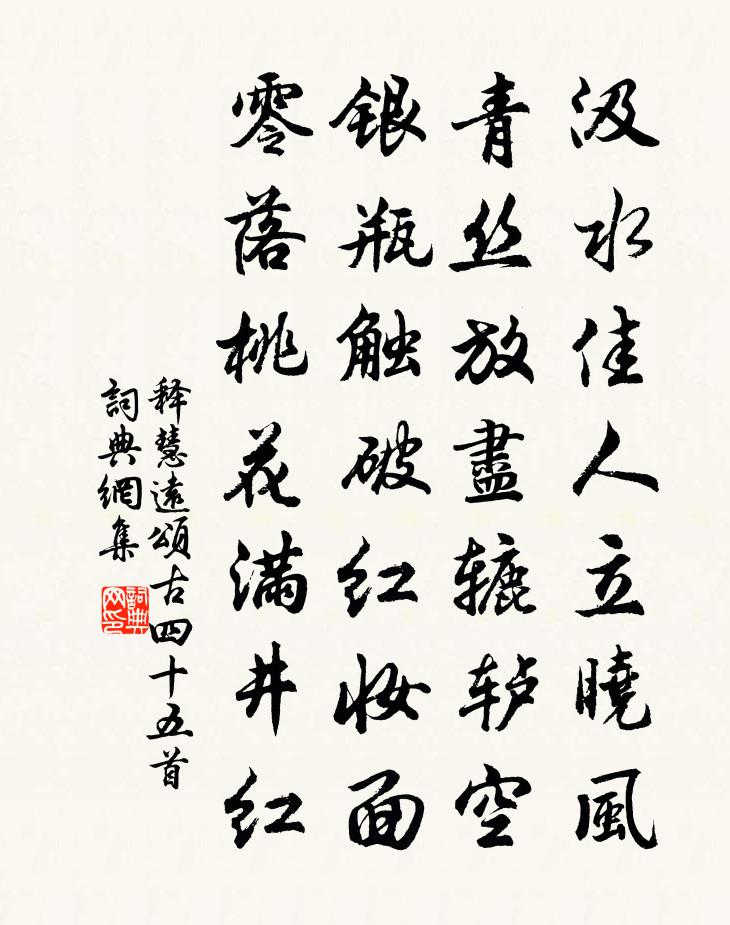 汲水佳人立曉風
青丝放盡辘轳空
银瓶触破红妆面
零落桃花满井红
释慧遠頌古四十五首
詞典網集
詞典网印